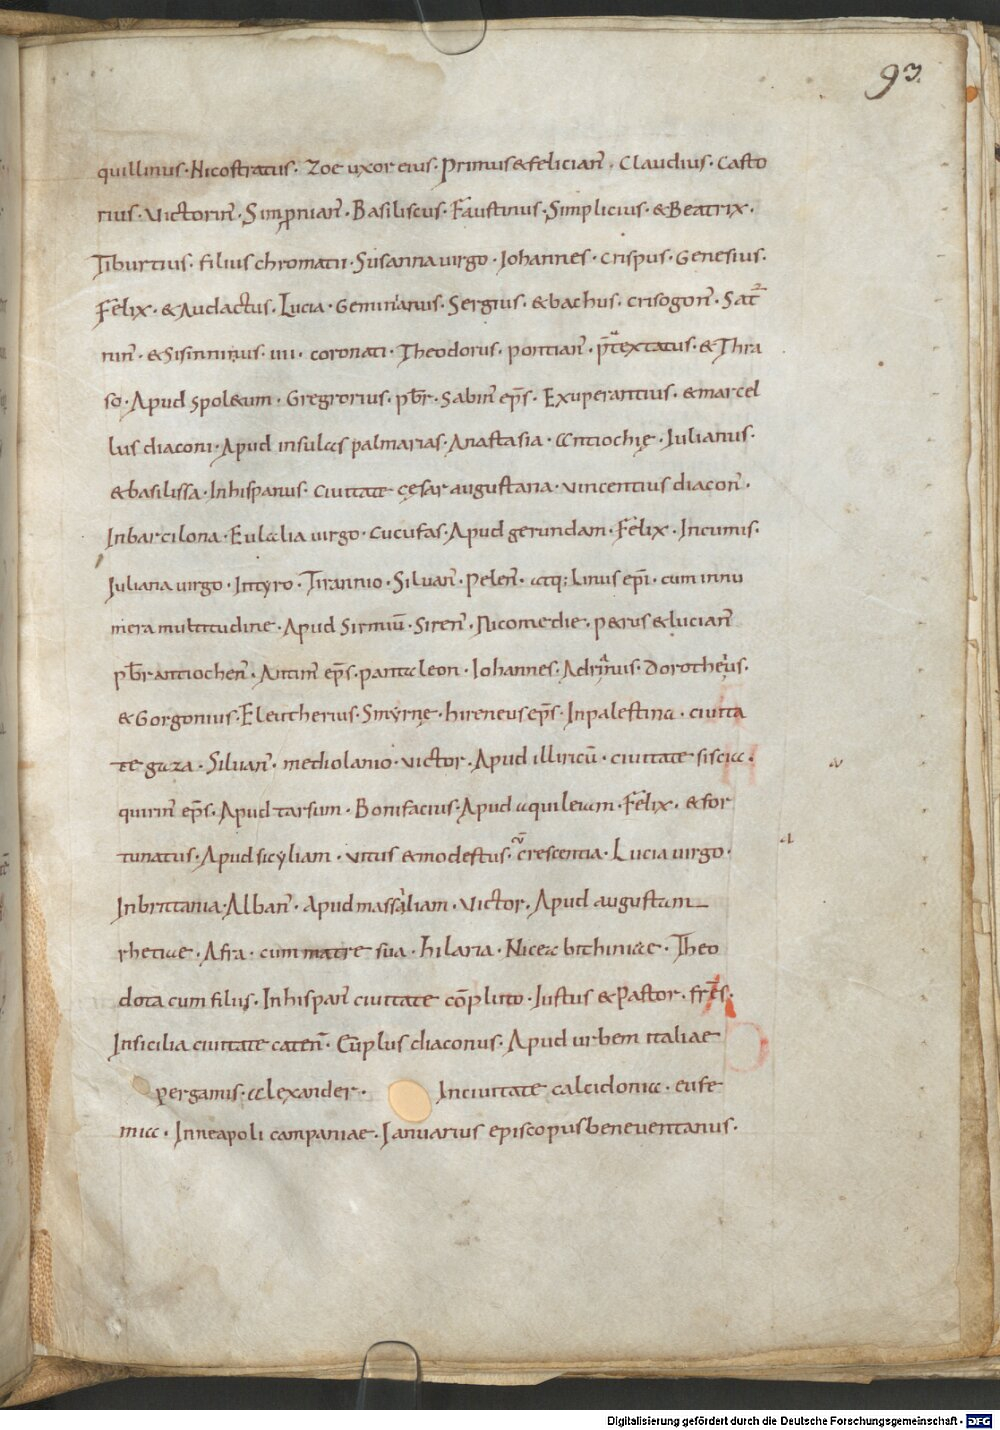 93.
quillinus · Nicostratus · Zoe uxor eius · Primus & felician̄ · Claudius · Casto
rius · Victorin̄ · Simpnian̄ · Basiliscus · Faustinus · Simplicius · & Beatrix ·
Tiburtius · filius chromatii · Susanna uirgo · Iohannes · Crispus · Genesius ·
Felix · & Audactus · Lucia · Geminianus · Sergius · & bachus · crisogon̄ · Sat̄
nin̄ · & Sisinninus · IIII · coronati · Theodorus · pontian̄ · p̄textatus · & Thra
so · Apud spol&um · Gregrorius · pb̄r · Sabin̄ ep̄s · Exuperantius · & marcel
lus diaconi · Apud insulas palmarias · Anastasia · Antiochię · Iulianus ·
& basilissa · In hispanus · Ciuitate cęsar augustana · Vincentius diacon̄ ·
In barcilona · Eulalia uirgo · Cucufas · Apud gerundam · Felix · In cumis ·
Iuliana uirgo · In tyro · Tirannio · Siluan̄ · Pelen̄ · atq; Linus ep̄i · cum innu
mera multitudine · Apud Sirmiū · Siren̄ · Nicomedie · p&rus & lucian̄
pb̄r antiochen̄ · Antim̄ ep̄s · pantaleon · Iohannes · Adrianus · Dorotheus ·
& Gorgonius · Eleutherius · Smyrnę · hireneus ep̄s · In palestina · ciuita
te gaza · Siluan̄ · mediolanio · victor · Apud illiricū · ciuitate siscia ·
quirin̄ ep̄s · Apud tarsum · Bonifacius · Apud aquileiam · Felix · & for
tunatus · Apud sicyliam · vitus & modestus · crescentia · Lucia uirgo ·
In brittania · Alban̄ · Apud massiliam · Victor · Apud augustam
rhetiae · Afra · cum matre sua · hilaria · Niceae bithiniae · Theo
dota cum filiis · In hispan̄ ciuitate cōpluto · Iustus & Pastor · fr̄es ·
In sicilia ciuitate caten̄ · Euplus diaconus · Apud urbem italiae
pergamis · Alexander · In ciuitate calcidonia · eufe
mia · In neapoli campaniae · Ianuarius episcopus beneuentanus ·
Digitalisierung gefördert durch die Deutsche Forschungsgemeinschaft · DFG